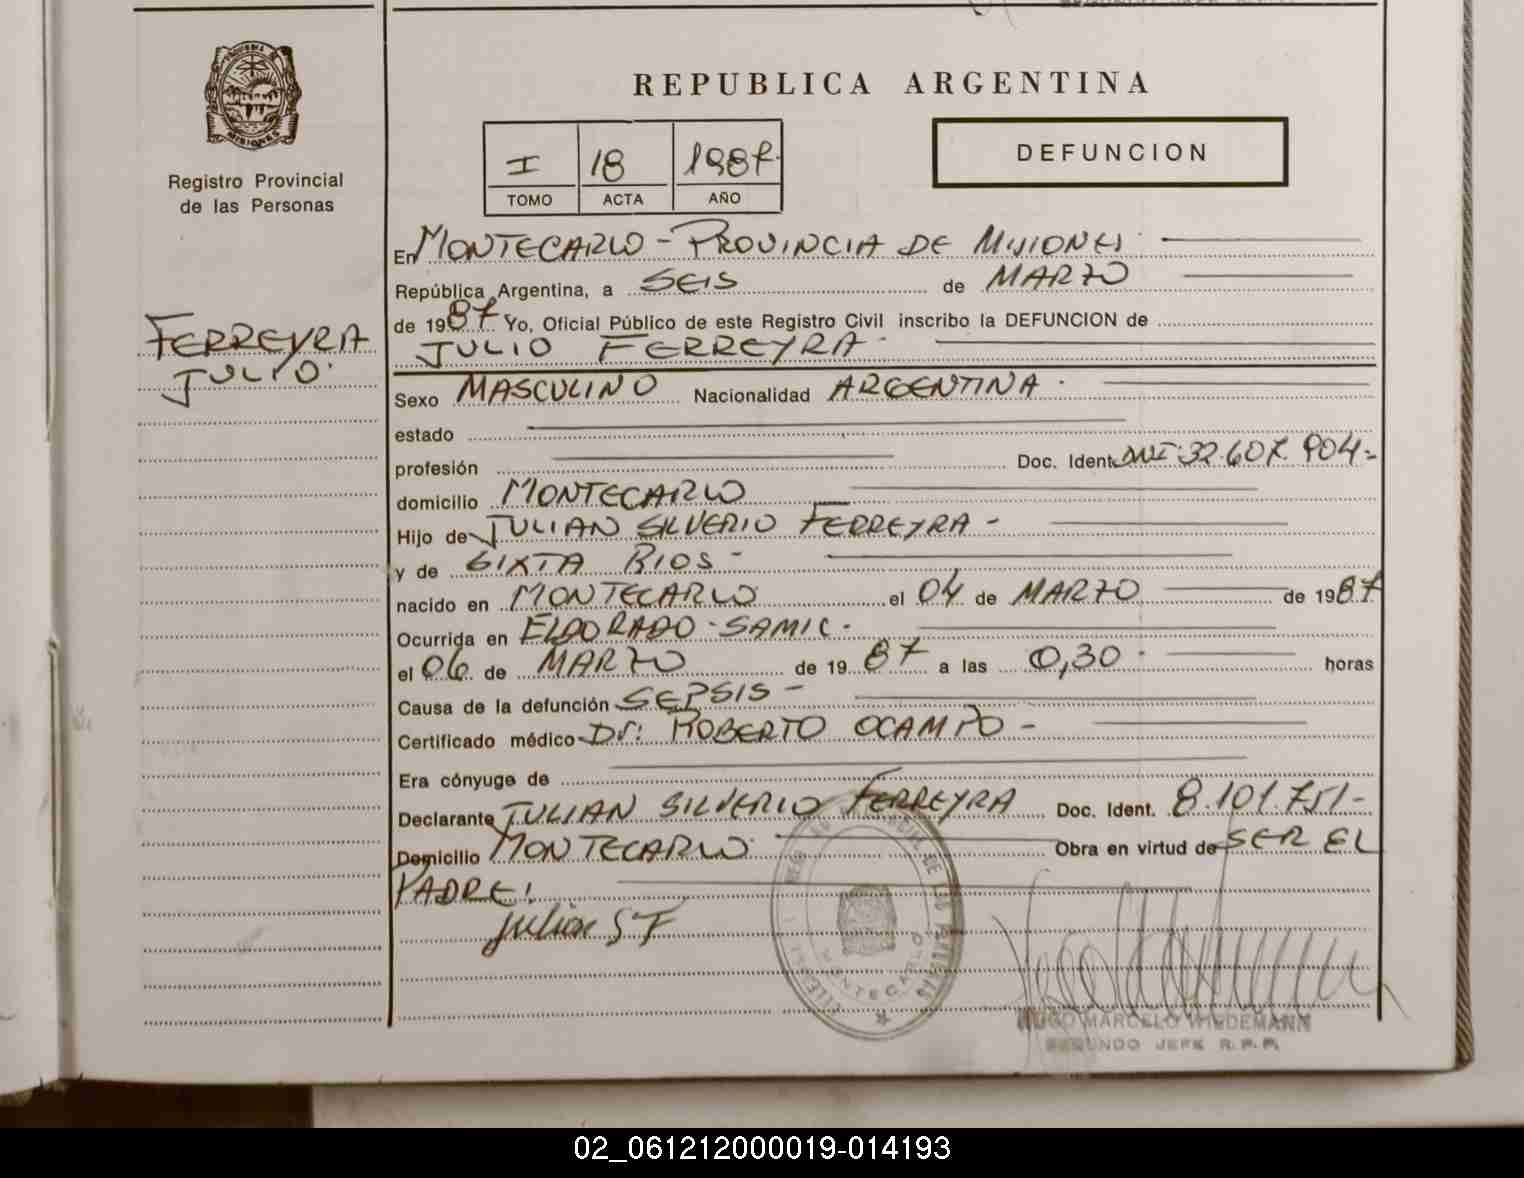 REPUBLICA ARGENTINA
PROVINCIA DE
MISIONES
Registro Provincial
de las Personas
I 18 1987
TOMO ACTA AÑO
DEFUNCION
En MONTECARLO - PROVINCIA DE MISIONES
República Argentina, a SEIS de MARZO
de 1987 Yo, Oficial Público de este Registro Civil inscribo la DEFUNCION de
JULIO FERREYRA
FERREYRA
JULIO
Sexo MASCULINO Nacionalidad ARGENTINA
estado
profesión Doc. Ident. DNI 32.607.904-
domicilio MONTECARLO
Hijo de JULIAN SILVERIO FERREYRA -
y de SIXTA RIOS -
nacido en MONTECARLO el 04 de MARZO de 1987
Ocurrida en ELDORADO - SAMIC -
el 06 de MARZO de 1987 a las 0,30 horas
Causa de la defunción SEPSIS -
Certificado médico Dr: ROBERTO OCAMPO -
Era cónyuge de
Declarante JULIAN SILVERIO FERREYRA Doc. Ident. 8.101.751-
Domicilio MONTECARLO Obra en virtud de SER EL
PADRE!
Julian S F
MONTECARLO
HUGO MARCELO WIEDEMANN
SEGUNDO JEFE R.P.P.
02_061212000019-014193